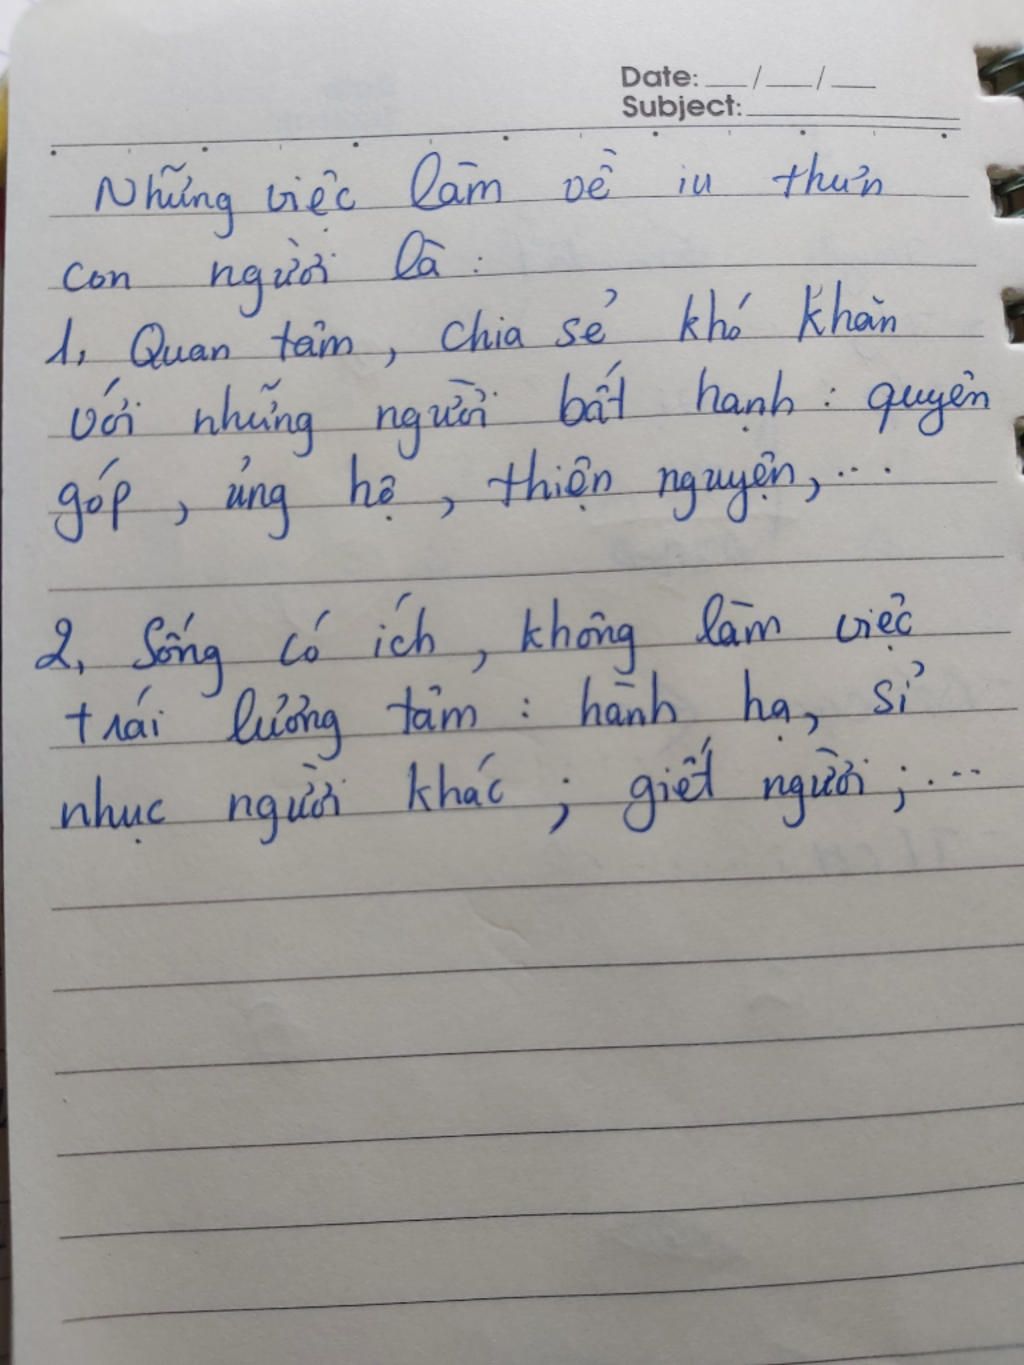 Date: __/__/__
Subject:
Những việc làm về iu thưn
con người là :
1, Quan tâm, chia sẻ khó khăn
với những người bất hạnh : quyên
góp, ủng hộ, thiện nguyện,...
2, Sống có ích, không làm việc
trái lương tâm : hành hạ, sỉ
nhục người khác ; giết người ;...